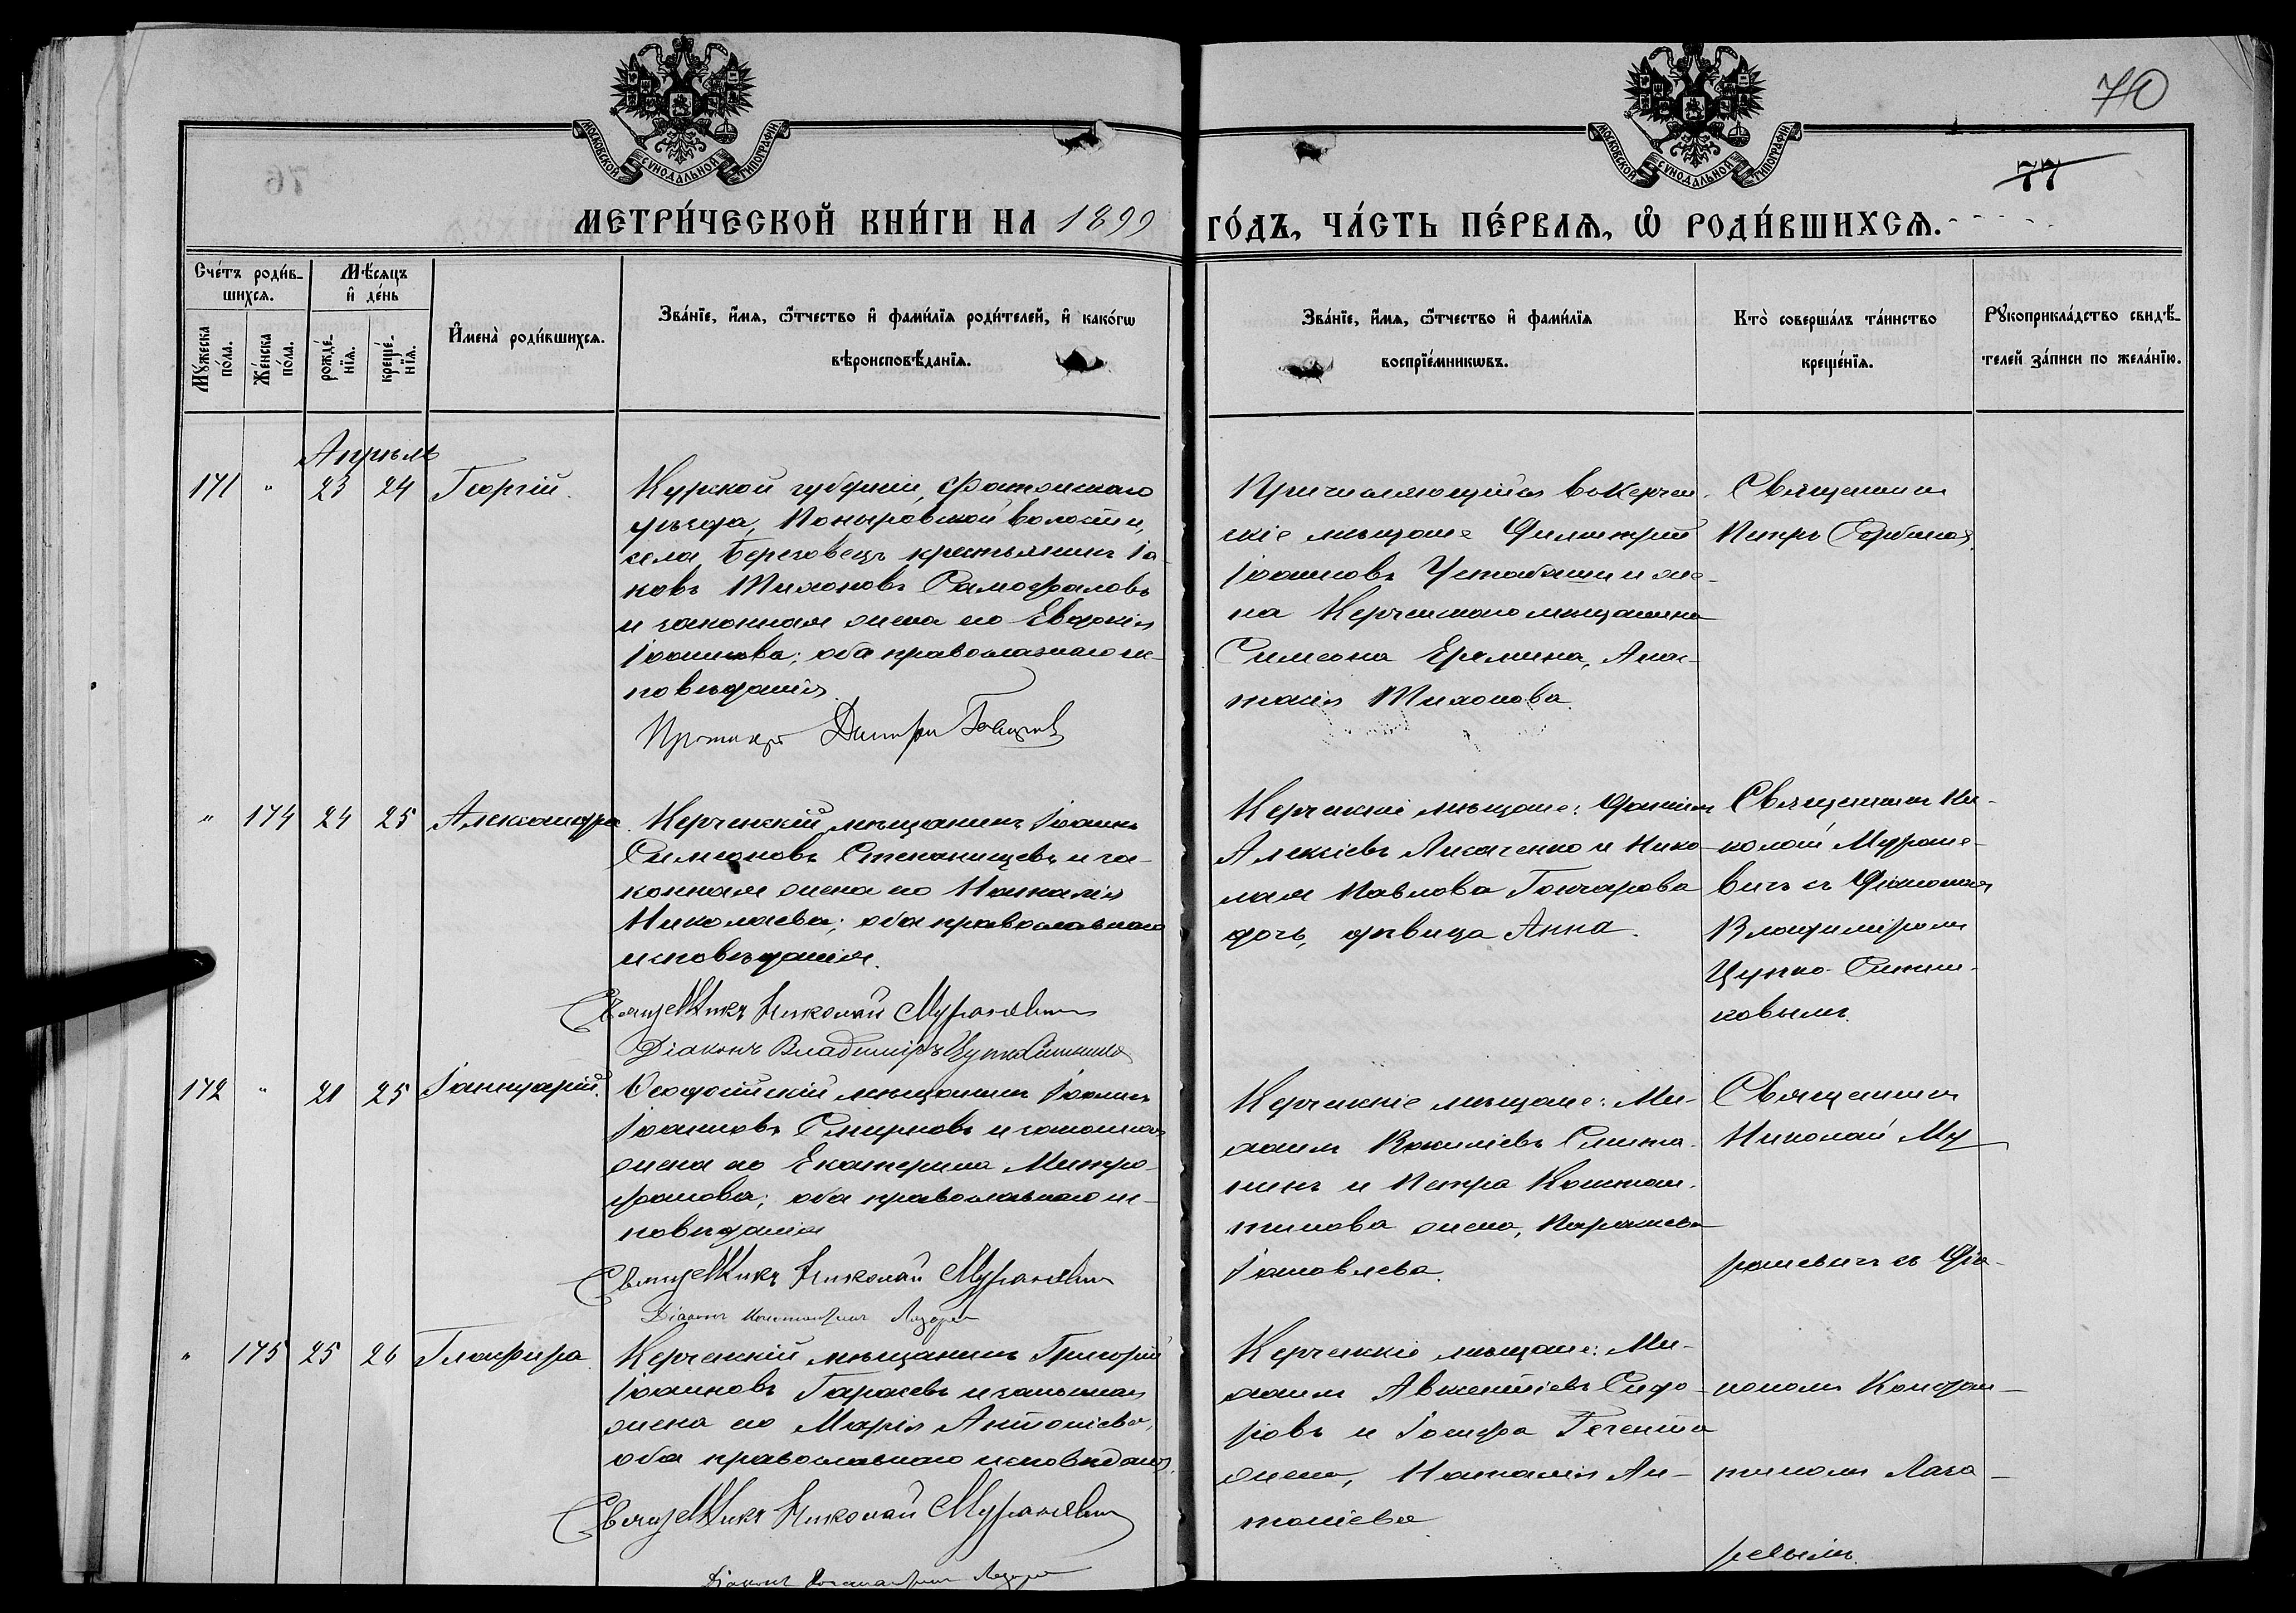 70
77
МОСКОВСКОЙ СУНОДАЛЬНОЙ ТИПОГРАФІИ
МОСКОВСКОЙ СУНОДАЛЬНОЙ ТИПОГРАФІИ
МЕТРИ́ЧЕСКОЙ КНИ́ГИ НА 1899 ГО́ДЪ, ЧА́СТЬ ПЕ́РВАѦ, Ѡ҆ РОДИ́ВШИХСѦ.
Сче́тъ роди́в-
шихсѧ.
Мѣ́сѧцъ
и҆ де́нь
Мꙋ́жеска
по́ла.
Же́нска
по́ла.
рожде́-
нїѧ.
креще́-
нїѧ.
И҆мена̀ роди́вшихсѧ.
Зва́нїе, и҆́мѧ, ѻ҆́тчество и҆ фами́лїѧ роди́телей, и҆ како́гѡ
вѣроисповѣ́данїѧ.
Зва́нїе, и҆́мѧ, ѻ҆́тчество и҆ фами́лїѧ
воспрїе́мникѡвъ.
Кто̀ соверша́лъ та́инство
креще́нїѧ.
Рꙋкоприкла́дство свидѣ́-
телей за́писи по жела́нїю.
Апрѣль
171 " 23 24 Георгій.
Курской губерніи, Фатежскаго
уѣзда, Поныровской волости,
села Березовецъ крестьянинъ Іа-
ковъ Тихоновъ Самофаловъ
и законная жена его Евдокія
Іоаннова; оба православнаго ис-
повѣданія.
Протоіерей Димитрій
Причисляющійся въ Керчен-
скіе мѣщане Димитрій
Іоанновъ Устабаши и же-
на Керченскаго мѣщанина
Симеона Еремина, Анас-
тасія Тихонова.
Священникъ
Петръ Сербинов
" 174 24 25 Александра.
Керченскій мѣщанинъ Іоаннъ
Симеоновъ Степанищевъ и за-
конная жена его Наталія
Николаева; оба православнаго
исповѣданія.
Священникъ Николай Мураневичъ
Діаконъ Владиміръ Цупко-Ситников
Керченскіе мѣщане: Даніилъ
Алексіевъ Лисаченко и Нико-
лая Павлова Гончарова
дочь, дѣвица Анна.
Священникъ Ни-
колай Муране-
вичъ съ Діакономъ
Владиміромъ
Цупко-Ситни-
ковымъ.
172 " 21 25 Іаннуарій.
Ѳеодосійскій мѣщанинъ Іоаннъ
Іоанновъ Смирновъ и законная
жена его Екатерина Митро-
фанова; оба православнаго ис-
повѣданія
Священникъ Николай Мураневичъ
Діаконъ Константинъ Лазарев
Керченскіе мѣщане: Ми-
хаилъ Василіевъ
нинъ и Петра Констан-
тинова жена, Параскева
Іаковлева.
Священникъ
Николай Му-
раневичъ съ Діа-
" 175 25 26 Глафира
Керченскій мѣщанинъ Григорій
Іоанновъ Гарасевъ и законная
жена его Марія Антоніева,
оба православнаго исповѣданія.
Священникъ Николай Мураневичъ
Діаконъ Константинъ Лазарев
Керченскіе мѣщане: Ми-
хаилъ Авксентіевъ Сидо-
ровъ и Іосифа
жена, Наталія Ан-
тоніева
кономъ Констан-
тиномъ Лаза-
ревымъ.